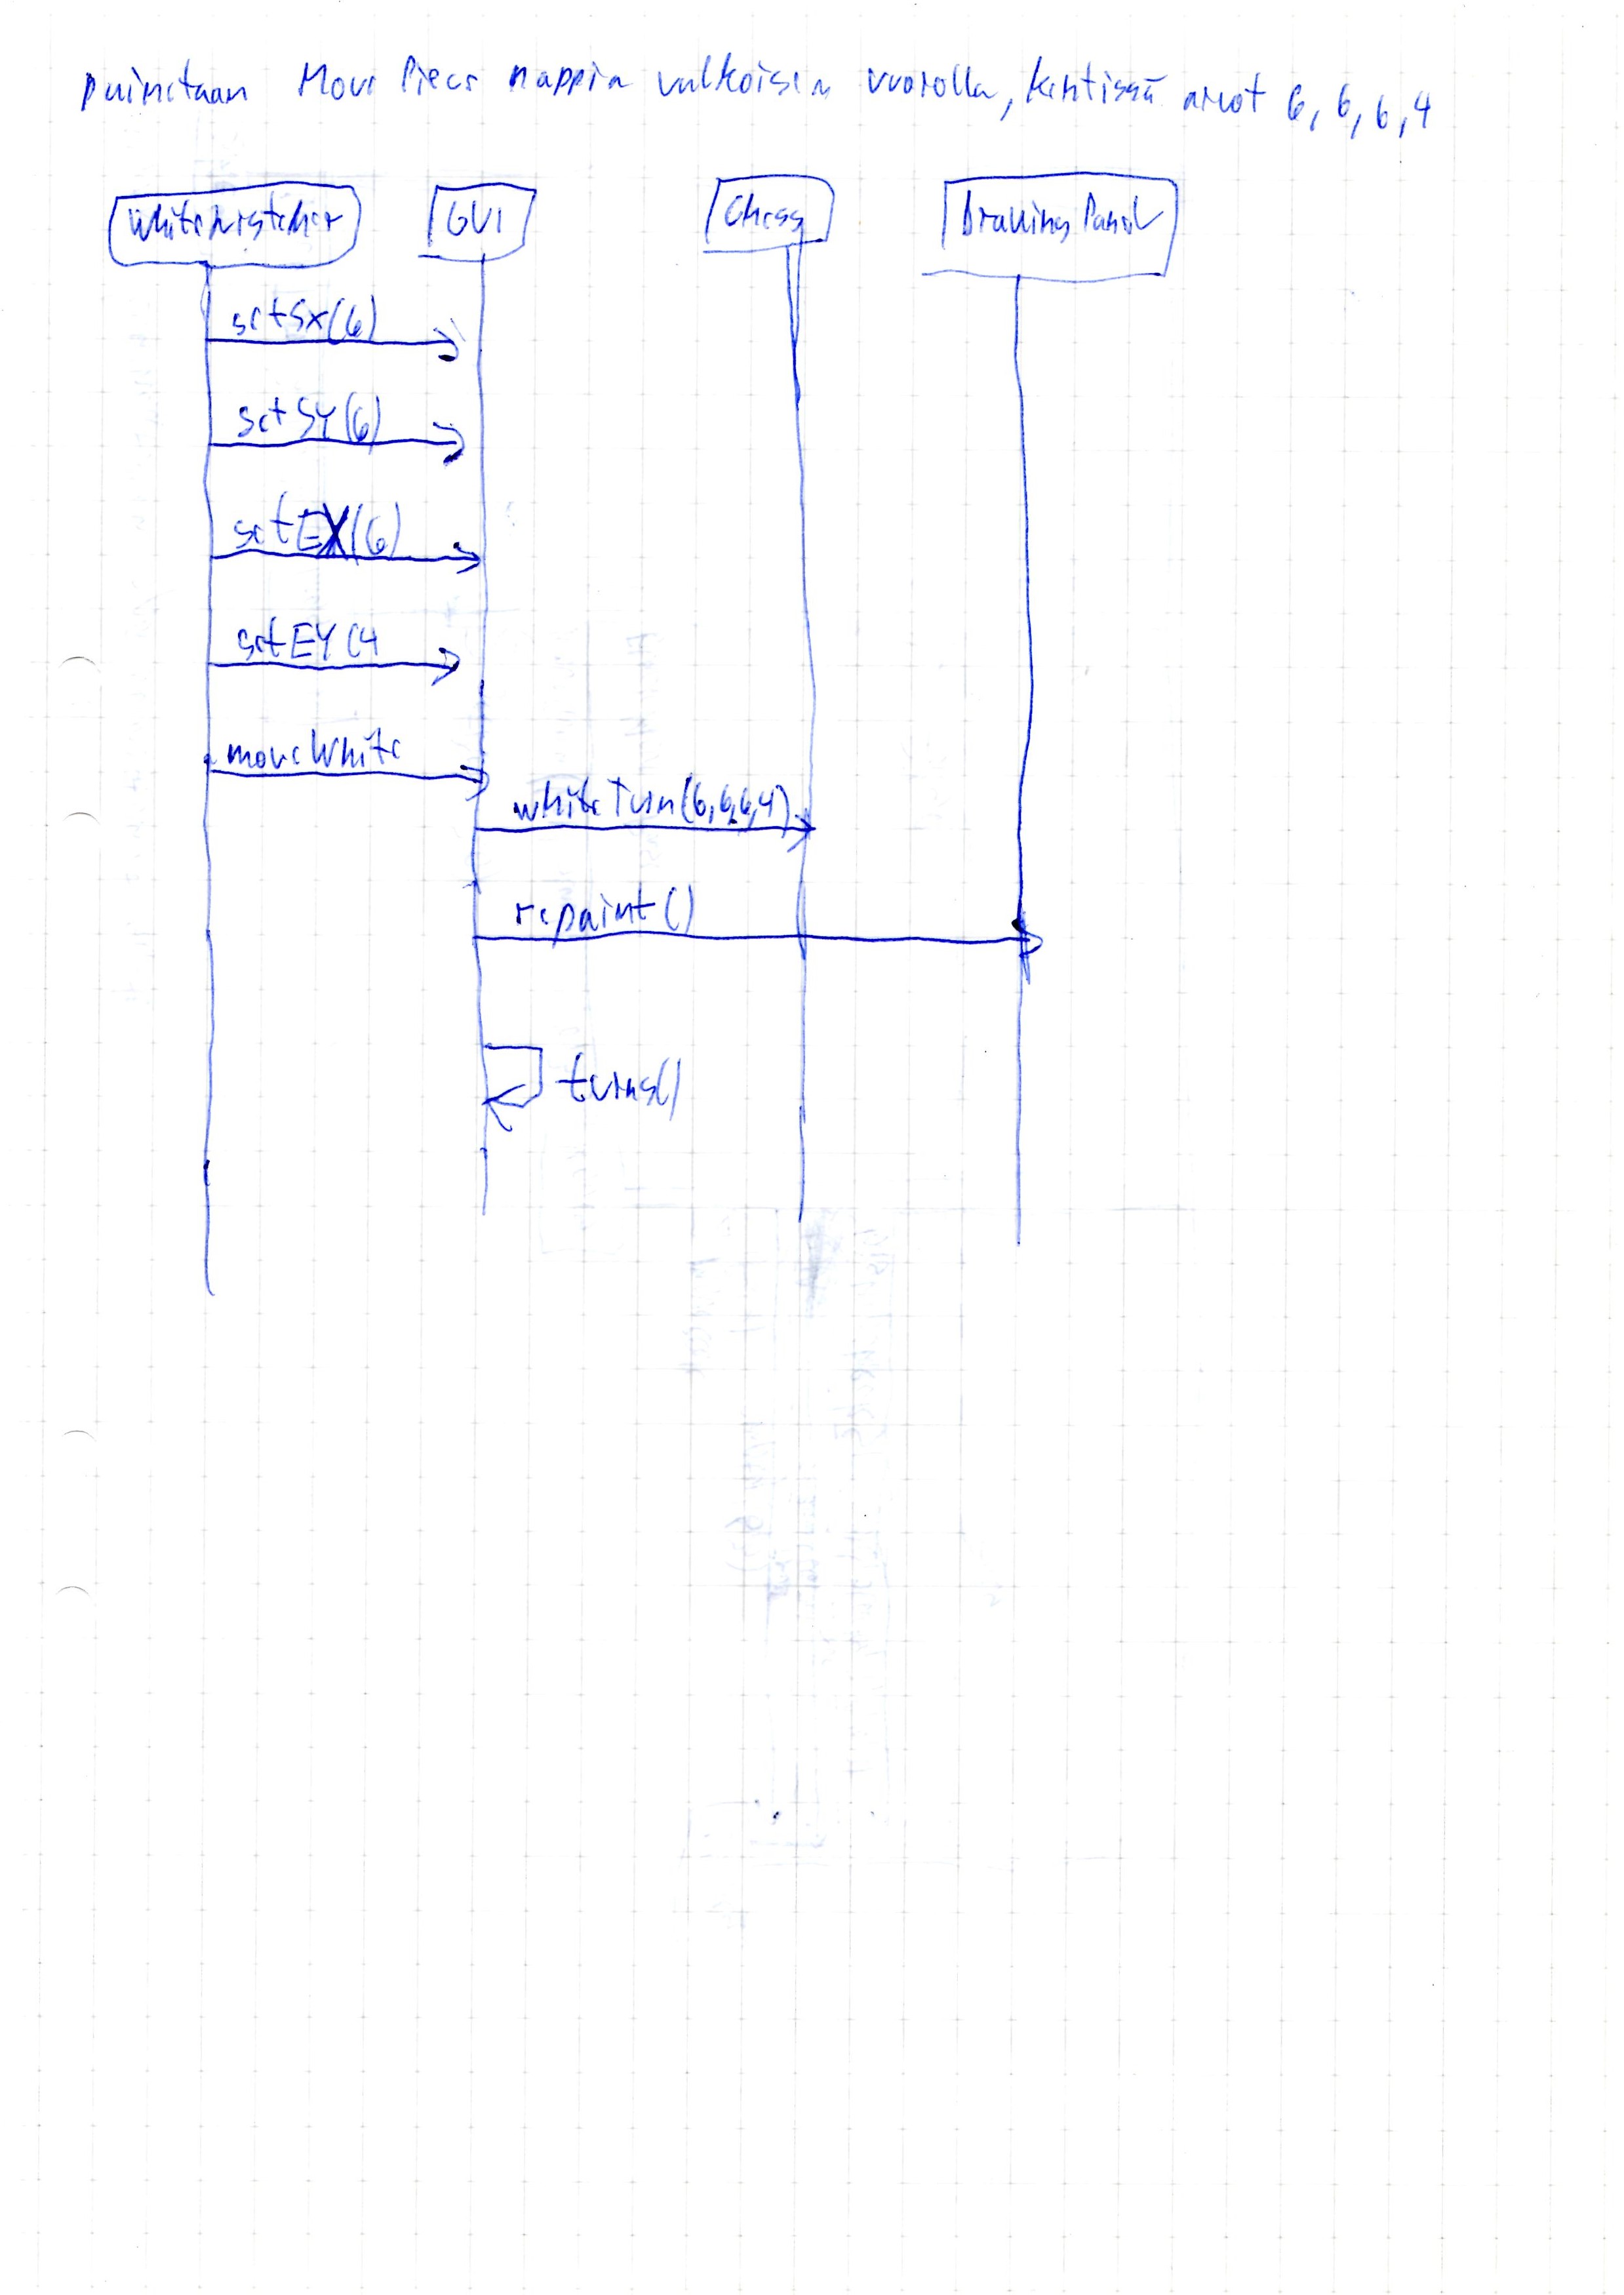 Painetaan Move Piece nappia valkoisen vuorolla, kentissä arvot 6, 6, 6, 4
WhiteListener GUI Chess DrawingPanel
setSX(6)
setSY(6)
setEX(6)
setEY(4
moveWhite
whiteTurn(6,6,6,4)
repaint()
turns()